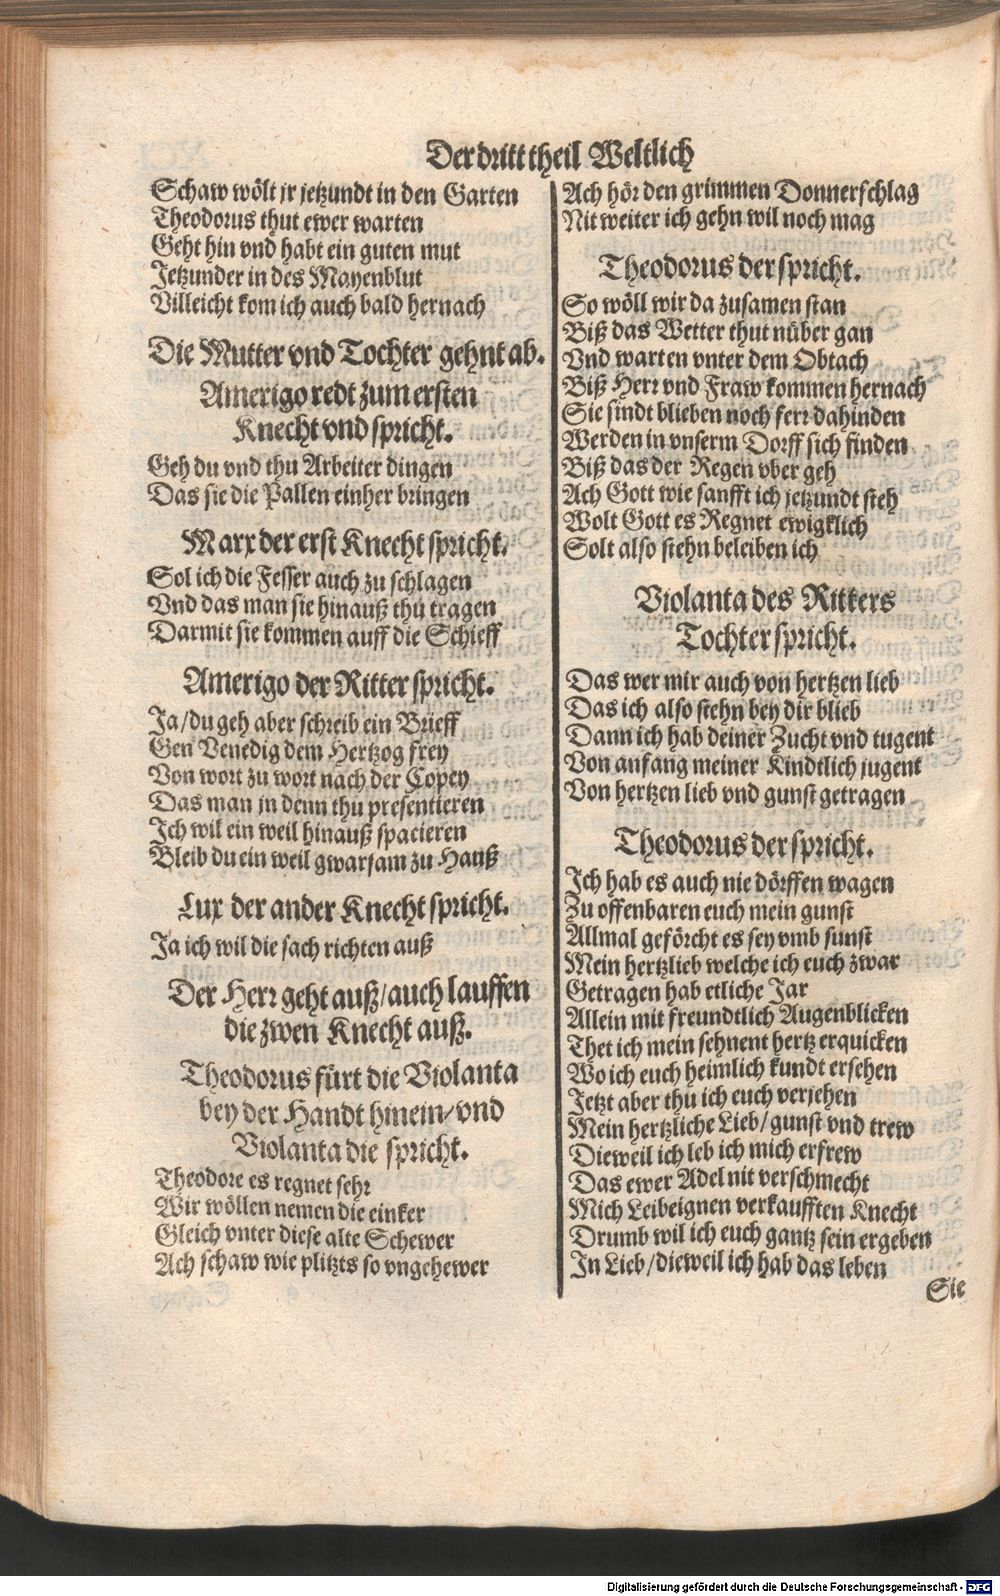 Der dritt theil Weltlich
Schaw wölt jr jetzundt in den Garten
Theodorus thut ewer warten
Geht hin vnd habt ein guten mut
Jetzunder in des Mayenblut
Villeicht kom ich auch bald hernach
Die Mutter vnd Tochter gehnt ab.
Amerigo redt zum ersten
Knecht vnd spricht.
Geh du vnd thu Arbeiter dingen
Das sie die Pallen einher bringen
Marx der erst Knecht spricht.
Sol ich die Fesser auch zu schlagen
Vnd das man sie hinauß thu tragen
Darmit sie kommen auff die Schieff
Amerigo der Ritter spricht.
Ja/du geh aber schreib ein Brieff
Gen Venedig dem Hertzog frey
Von wort zu wort nach der Copey
Das man jn denn thu presentieren
Ich wil ein weil hinauß spacieren
Bleib du ein weil gwarsam zu Hauß
Lux der ander Knecht spricht.
Ja ich wil die sach richten auß
Der Herr geht auß/auch lauffen
die zwen Knecht auß.
Theodorus fürt die Violanta
bey der Handt hinein/vnd
Violanta die spricht.
Theodore es regnet sehr
Wir wöllen nemen die einker
Gleich vnter diese alte Schewer
Ach schaw wie plitzts so vngehewer
Ach hör den grimmen Donnerschlag
Nit weiter ich gehn wil noch mag
Theodorus der spricht.
So wöll wir da zusamen stan
Biß das Wetter thut nüber gan
Vnd warten vnter dem Obtach
Biß Herr vnd Fraw kommen hernach
Sie sindt blieben noch ferr dahinden
Werden in vnserm Dorff sich finden
Biß das der Regen vber geh
Ach Gott wie sanfft ich jetzundt steh
Wolt Gott es Regnet ewigklich
Solt also stehn beleiben ich
Violanta des Ritters
Tochter spricht.
Das wer mir auch von hertzen lieb
Das ich also stehn bey dir blieb
Dann ich hab deiner Zucht vnd tugent
Von anfang meiner Kindtlich jugent
Von hertzen lieb vnd gunst getragen
Theodorus der spricht.
Ich hab es auch nie dörffen wagen
Zu offenbaren euch mein gunst
Allmal geförcht es sey vmb sunst
Mein hertzlieb welche ich euch zwar
Getragen hab etliche Jar
Allein mit freundtlich Augenblicken
Thet ich mein sehnent hertz erquicken
Wo ich euch heimlich kundt ersehen
Jetzt aber thu ich euch verjehen
Mein hertzliche Lieb/gunst vnd trew
Dieweil ich leb ich mich erfrew
Das ewer Adel nit verschmecht
Mich Leibeignen verkaufften Knecht
Drumb wil ich euch gantz sein ergeben
In Lieb/dieweil ich hab das leben
Sie
Digitalisierung gefördert durch die Deutsche Forschungsgemeinschaft - DFG